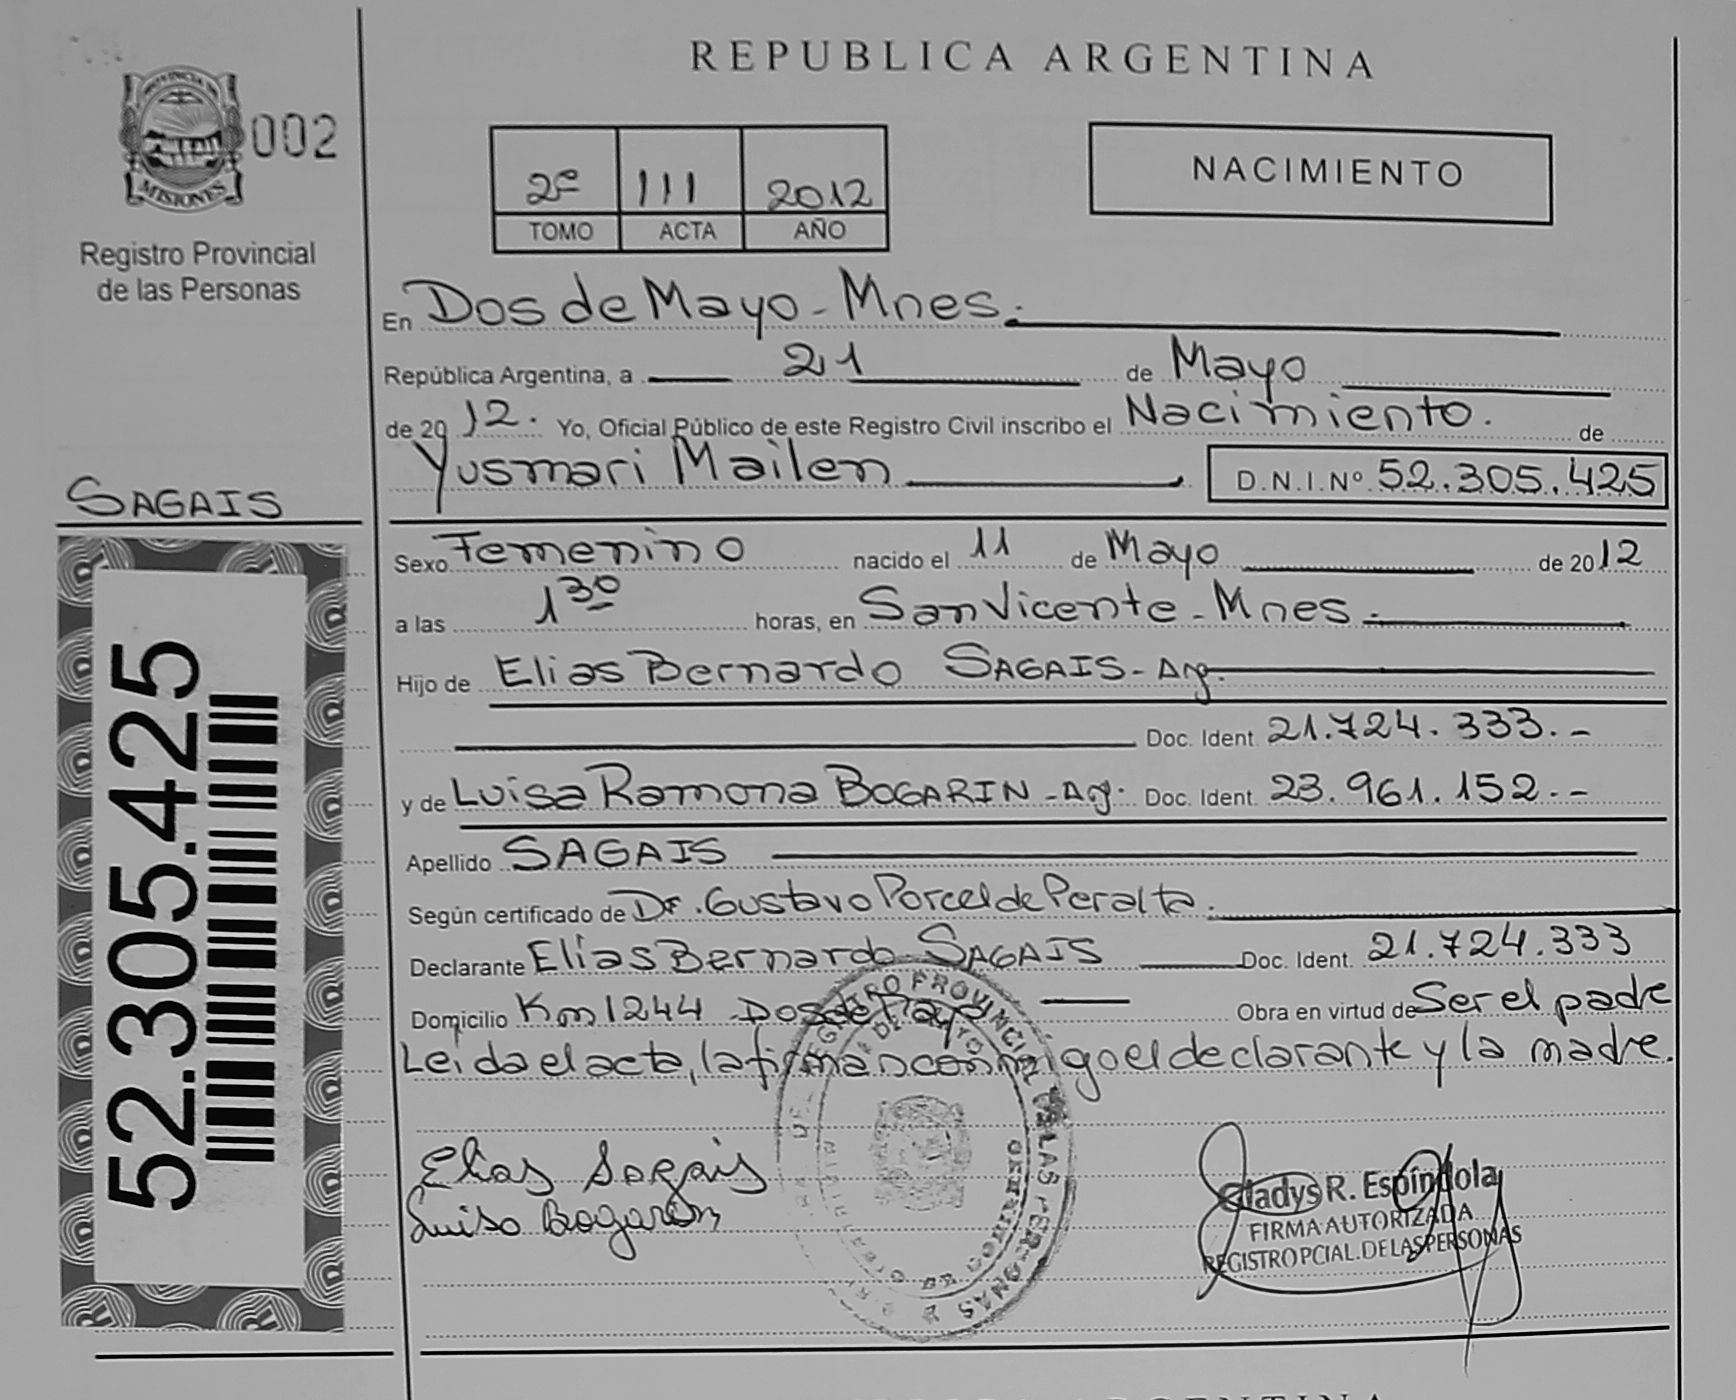 REPUBLICA ARGENTINA
PROVINCIA DE
MISIONES
002
Registro Provincial
de las Personas
2º 111 2012
TOMO ACTA AÑO
NACIMIENTO
En Dos de Mayo - Mnes.
República Argentina, a 21 de Mayo
de 2012. Yo, Oficial Público de este Registro Civil inscribo el Nacimiento. de
Yusmari Mailen D.N.I.Nº 52.305.425
SAGAIS
52.305.425
Sexo Femenino nacido el 11 de Mayo de 2012
a las 1 30 horas, en San Vicente - Mnes.
Hijo de Elias Bernardo SAGAIS - Arg.
Doc. Ident 21.724.333.-
y de Luisa Ramona BOGARIN - Arg. Doc. Ident. 23.961.152.-
Apellido SAGAIS
Según certificado de Dr. Gustavo Porcel de Peralta.
Declarante Elias Bernardo SAGAIS Doc. Ident. 21.724.333
Domicilio Km 1244 - Dos de Mayo Obra en virtud de Ser el padre
Leida el acta, la firman conmigo el declarante y la madre.
Elias Sagais
Luisa Bogarin
Gladys R. Espíndola
FIRMA AUTORIZADA
REGISTRO PCIAL. DE LAS PERSONAS